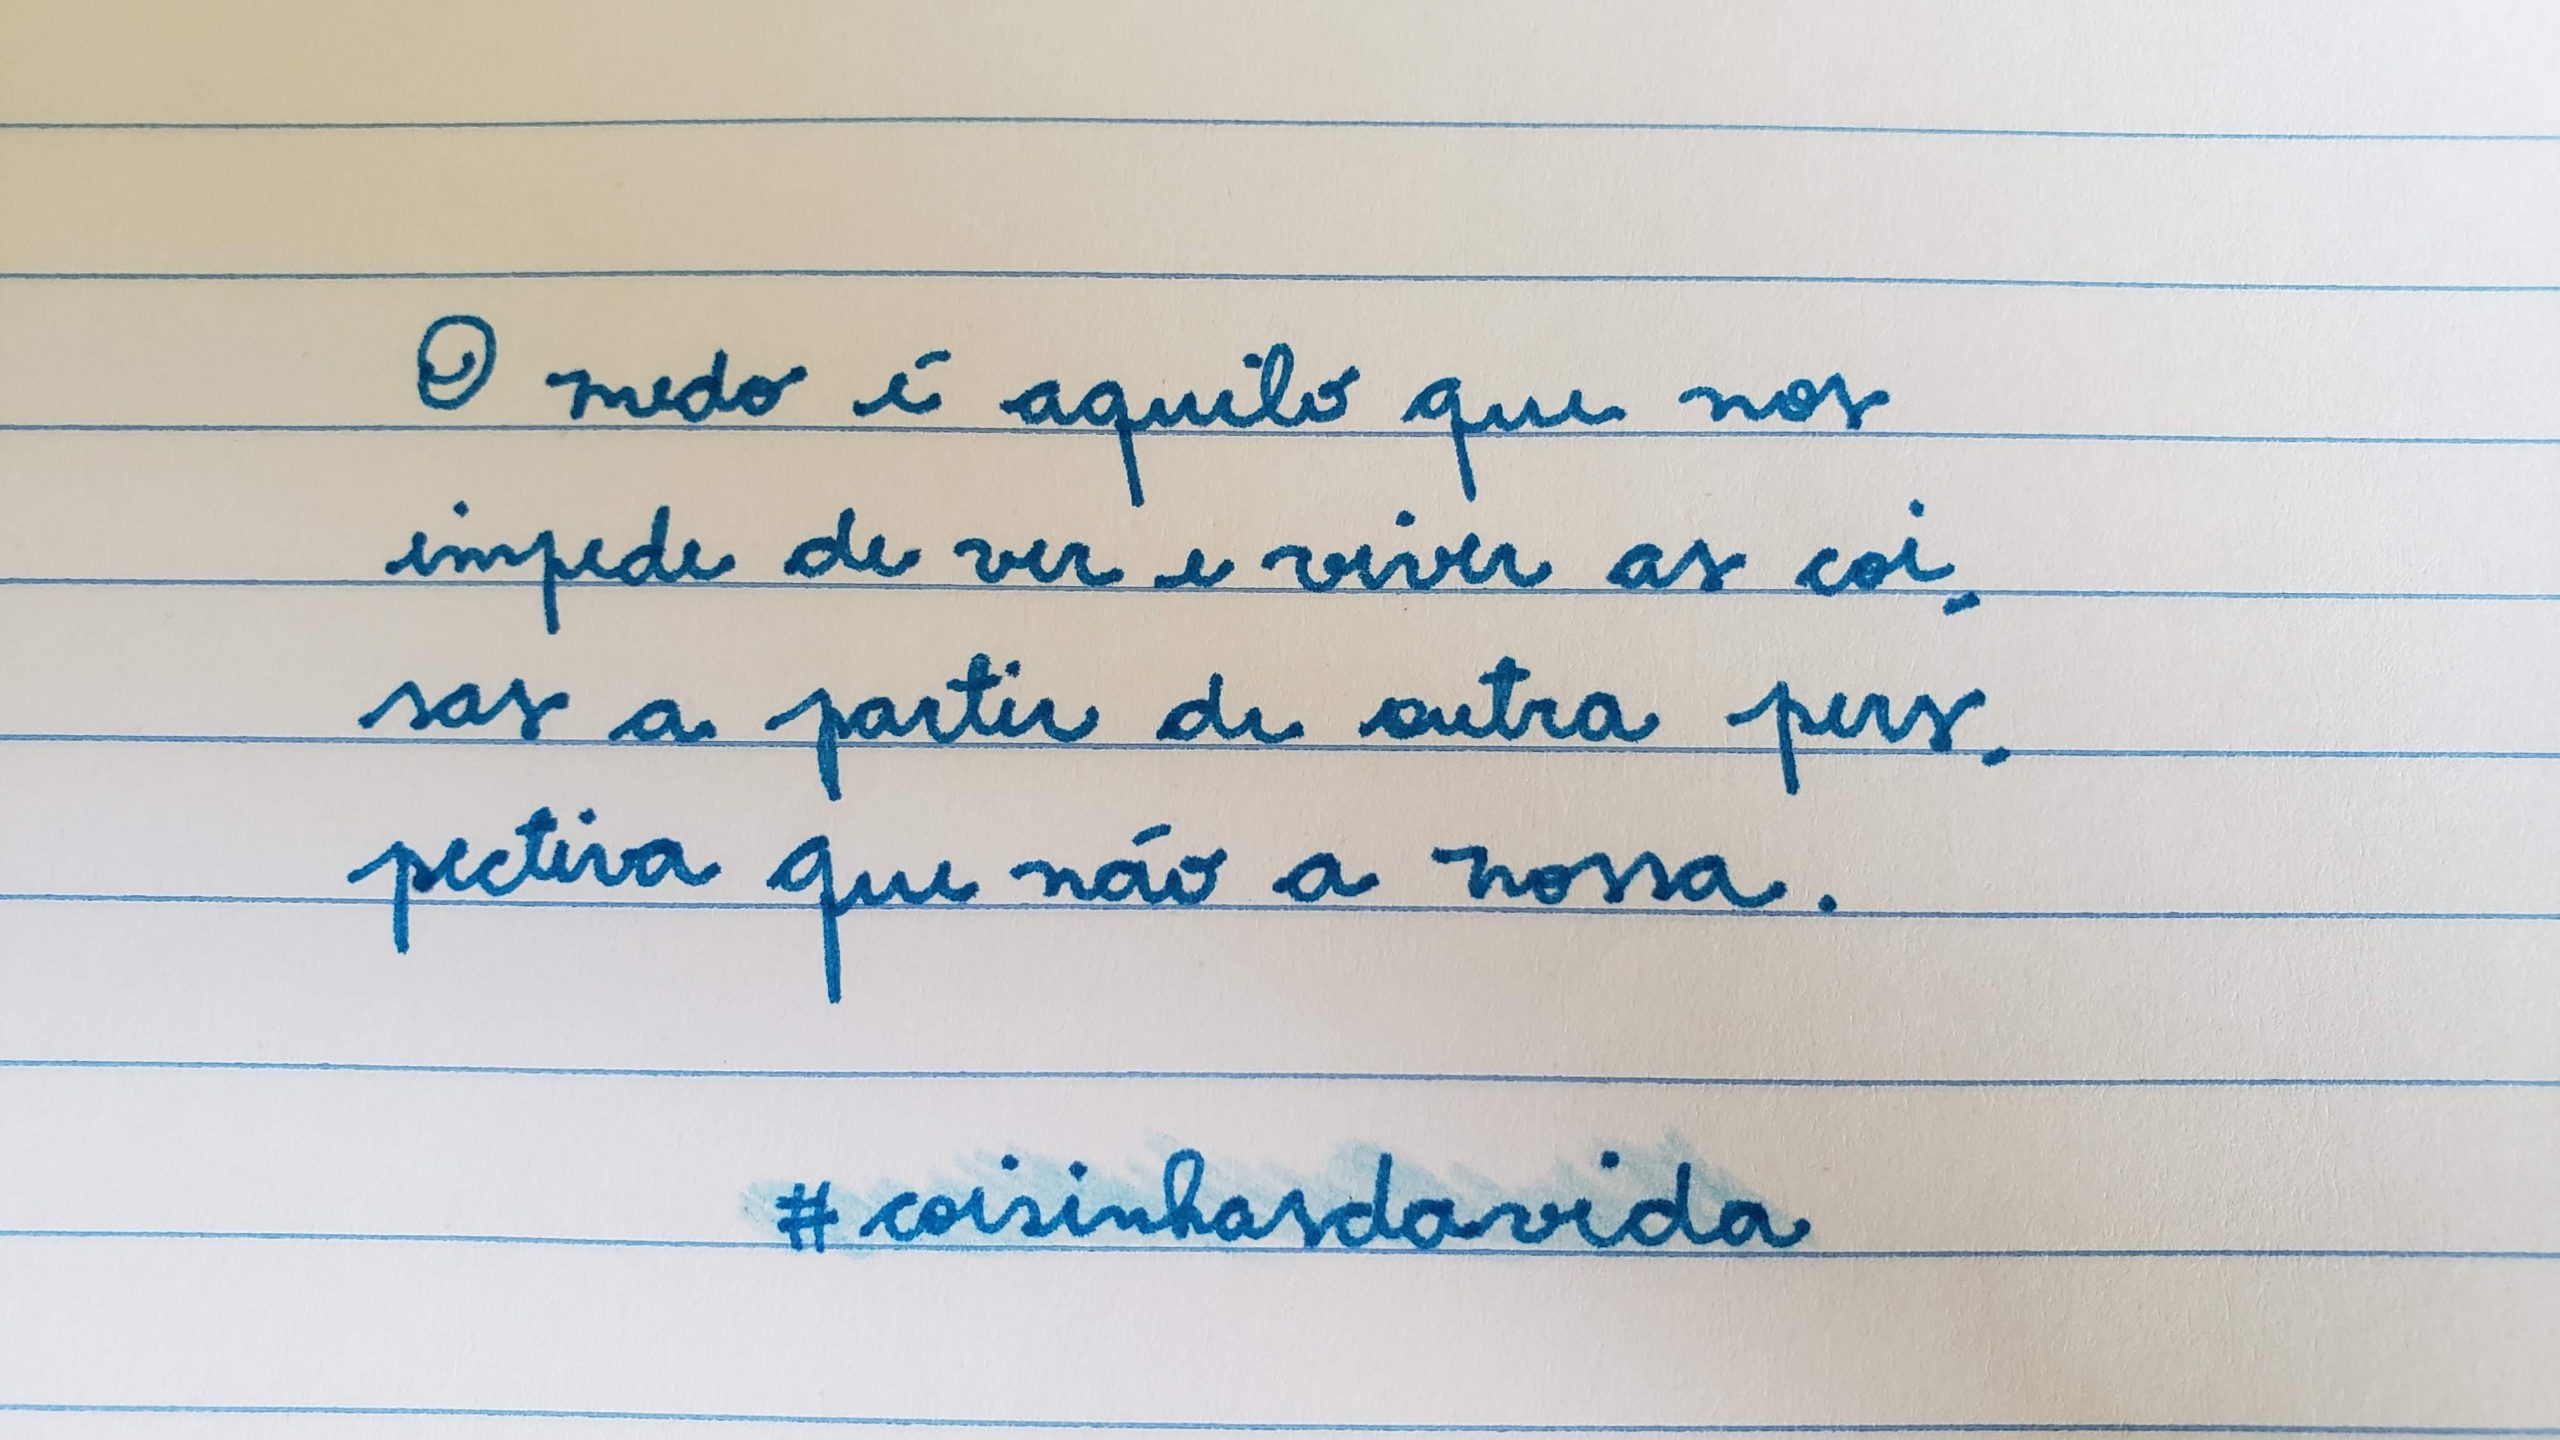 O medo é aquilo que nos
impede de ver e viver as coi-
sas a partir de outra pers-
pectiva que não a nossa.
#coisinhasdavida